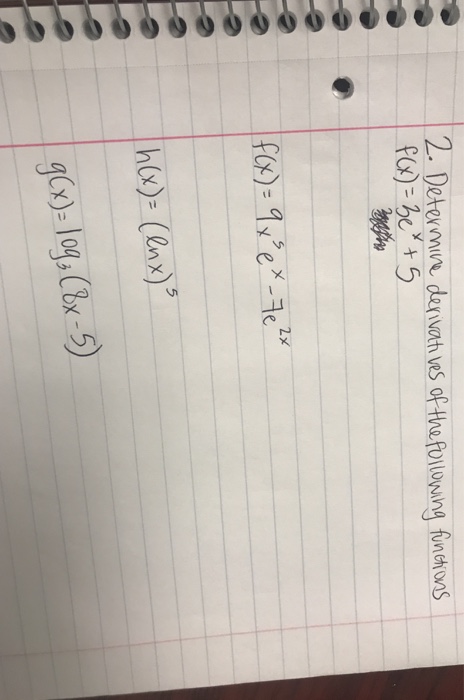 2. Determine derivatives of the following functions
f(x) = 3eˣ + 5
f(x) = 9x⁵eˣ - 7e²ˣ
h(x) = (ln x)⁵
g(x) = log₃(8x - 5)